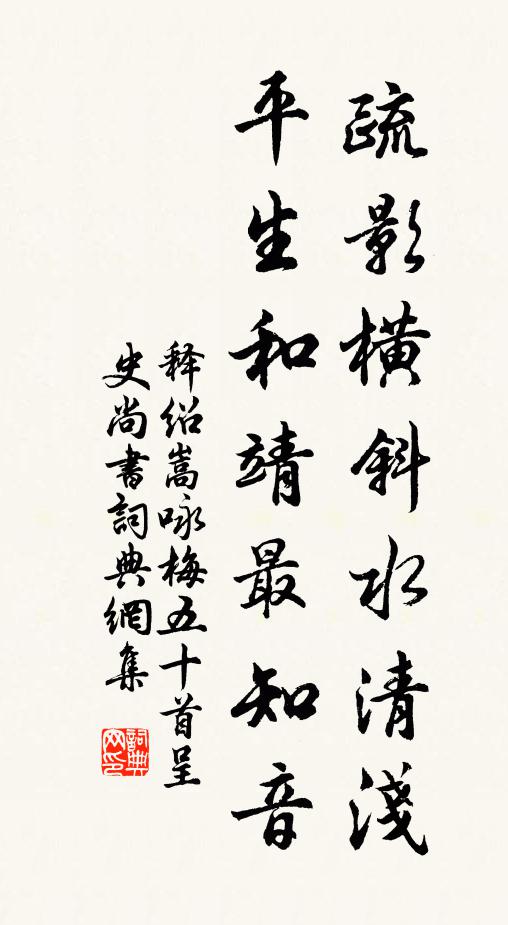 疏影橫斜水清淺
平生和靖最知音
释绍嵩咏梅五十首呈
史尚書詞典網集
詞典网印